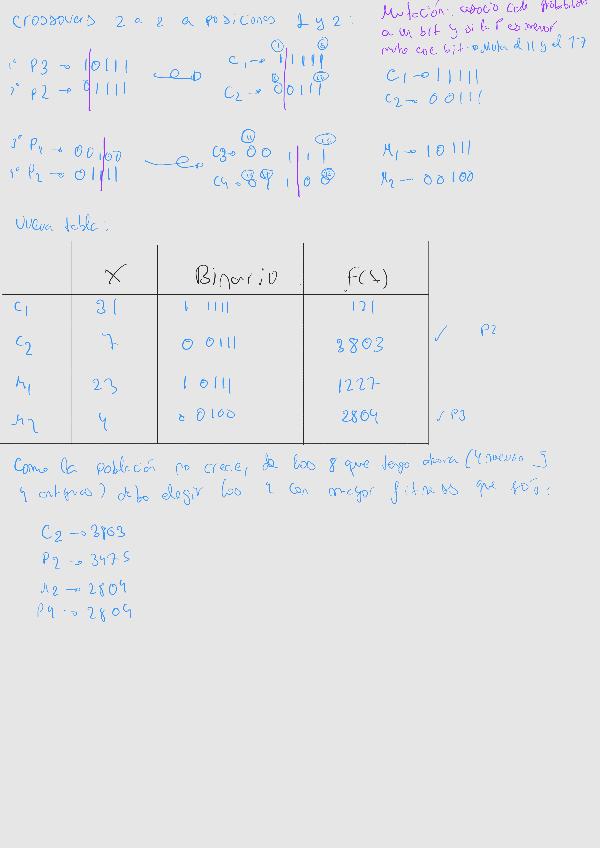 crossovers 2 a 2 a posiciones 1 y 2:
Mutación: asocio cada probabilidad
a un bit y si la P es menor
muto ese bit → muta el 11 y el 17
1º P3 → 10111
2º P2 → 01111
C1 → 11111
C2 → 00111
C1 → 11111
C2 → 00111
3º P4 → 00100
4º P2 → 01111
C3 → 00 111
C4 → 01 100
M1 → 10111
M2 → 00100
nueva tabla:
X Binario F(x)
C1 31 1 1111 121
C2 7 0 0111 3803 ✓ P2
M1 23 1 0111 1227
M2 4 0 0100 2804 ✓ P3
Como la población no crece, de los 8 que tengo ahora (4 nuevos
4 antiguos) debo elegir los 4 con mayor fitness que son:
C2 → 3803
P2 → 3475
M2 → 2804
P4 → 2804